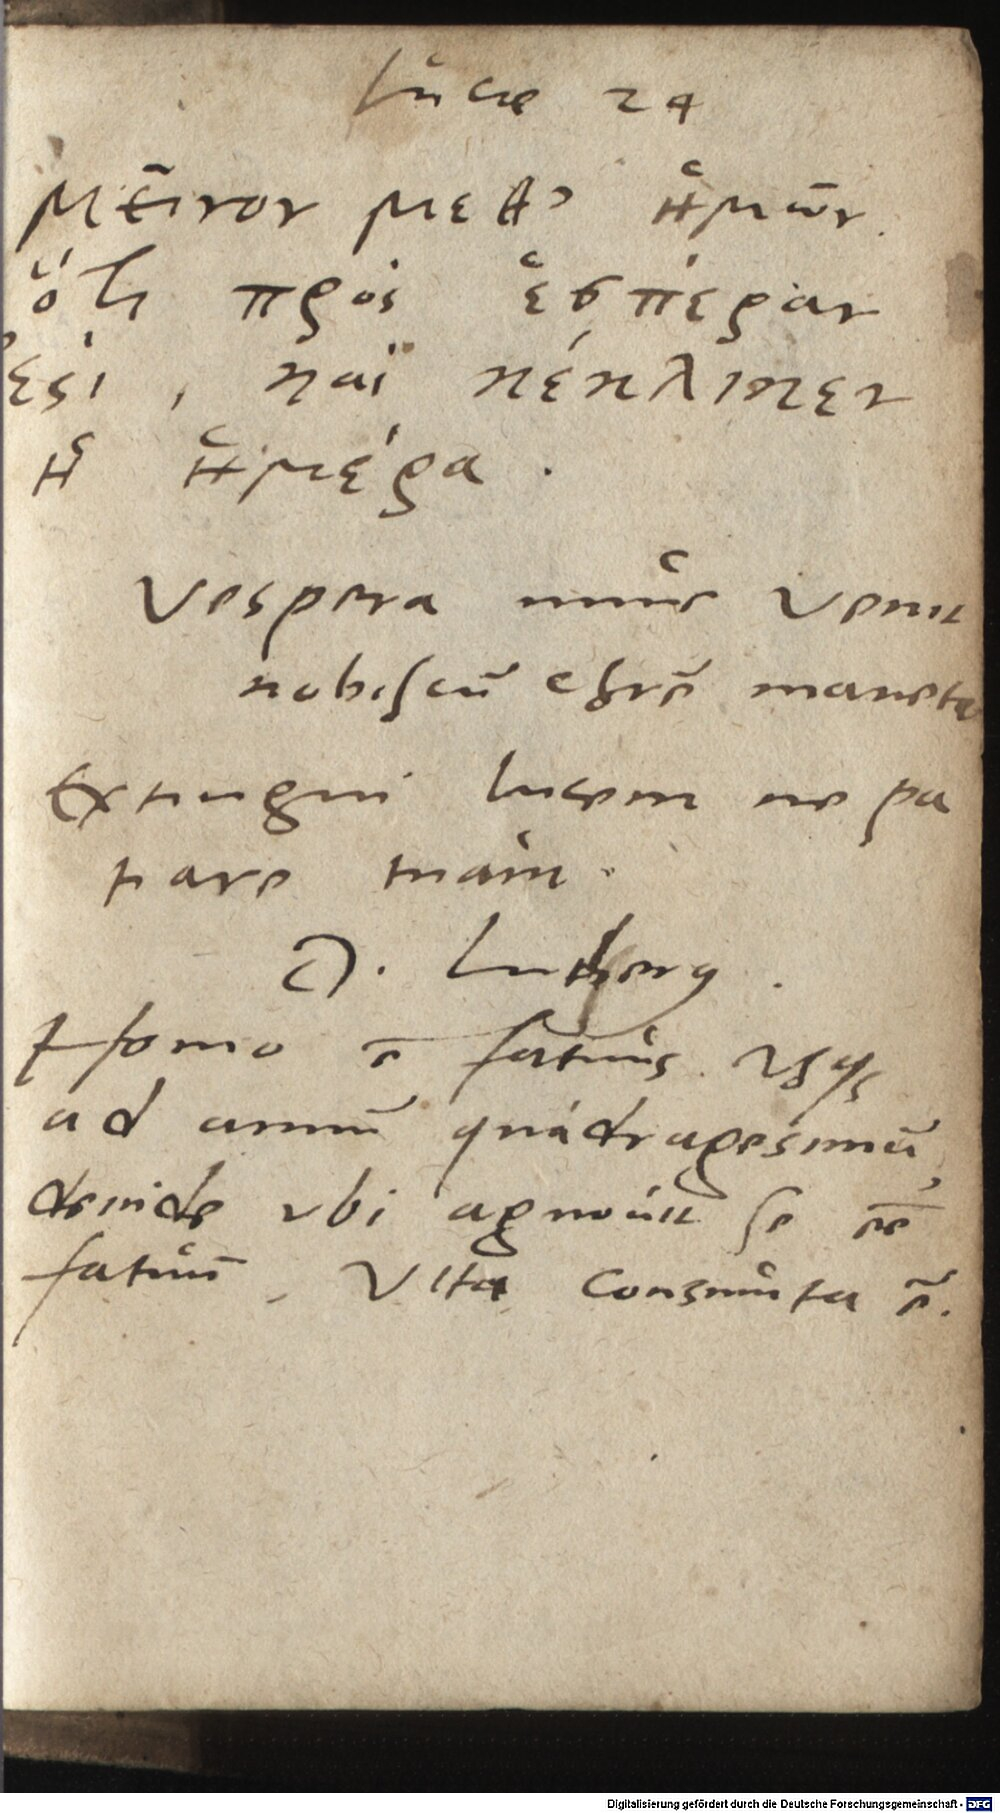 Lucae 24
Μεῖνον μεθ' ἡμῶν.
ὅτι πρὸς ἑσπέραν
ἐςι, καὶ κέκλικεν
ἡ ἡμέρα.
Vespera nunc venit
nobiscū Chrē maneto
Extingui lucem ne pa
tiare tuam.
D. Lutherg.
Homo ē fatuus vsqs
ad annū quadragesimū,
deinde vbi agnouit se ēē
fatuū, vita consumta ē.
Digitalisierung gefördert durch die Deutsche Forschungsgemeinschaft - DFG